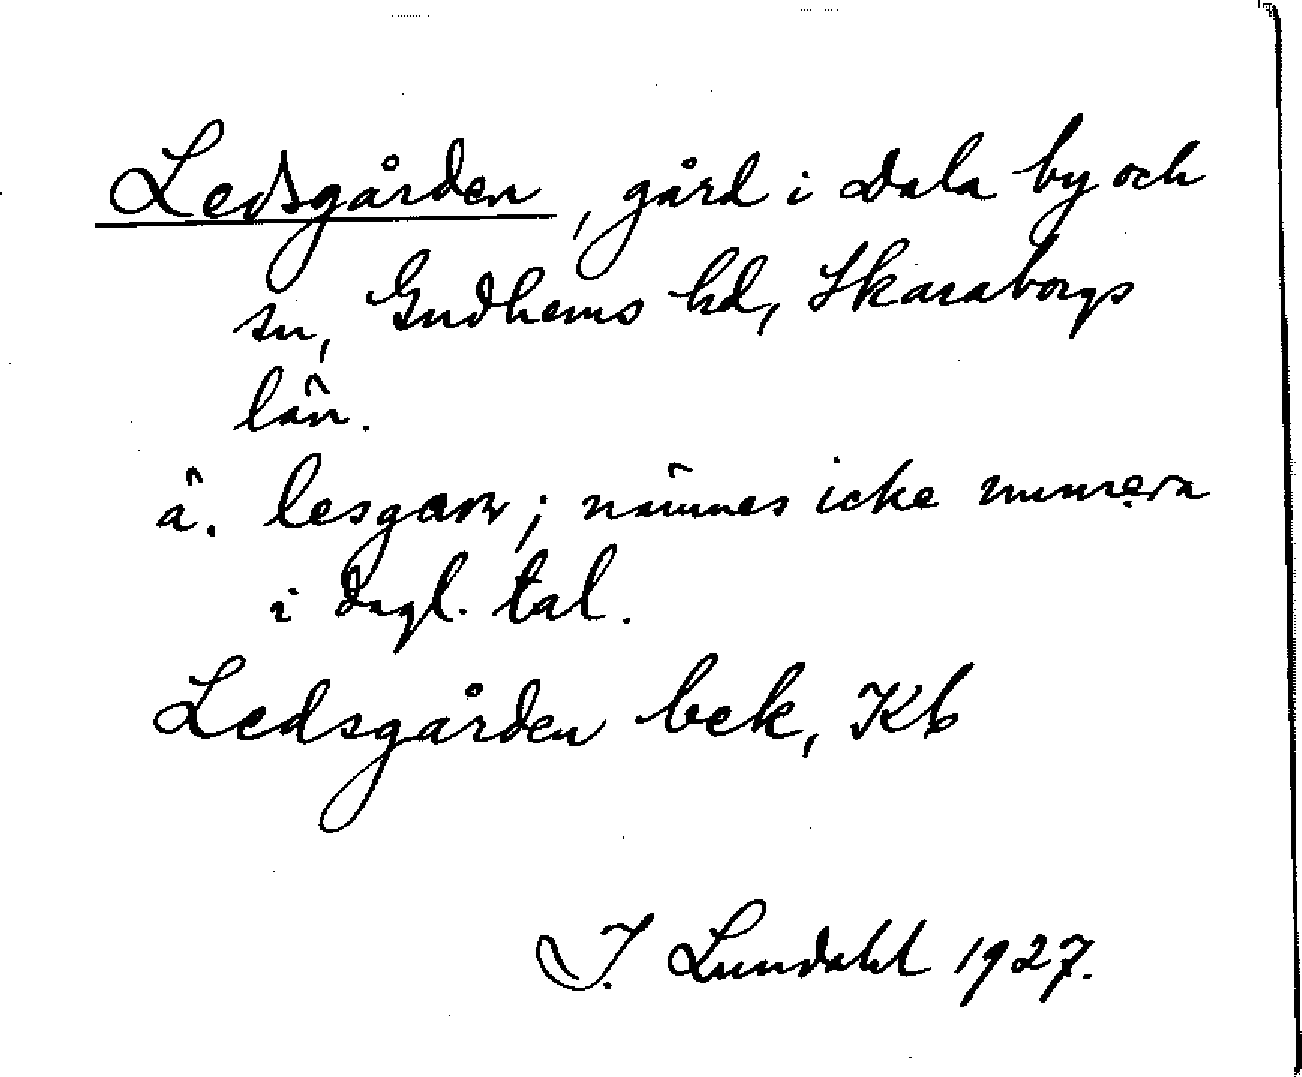 Ledsgården, gård i Dala by och
sn, Gudhems hd, Skaraborgs
län.
ä. lesgarn; nämnes icke numera
i dagl. tal.
Ledsgården bek, Kb
I. Lundahl 1927.